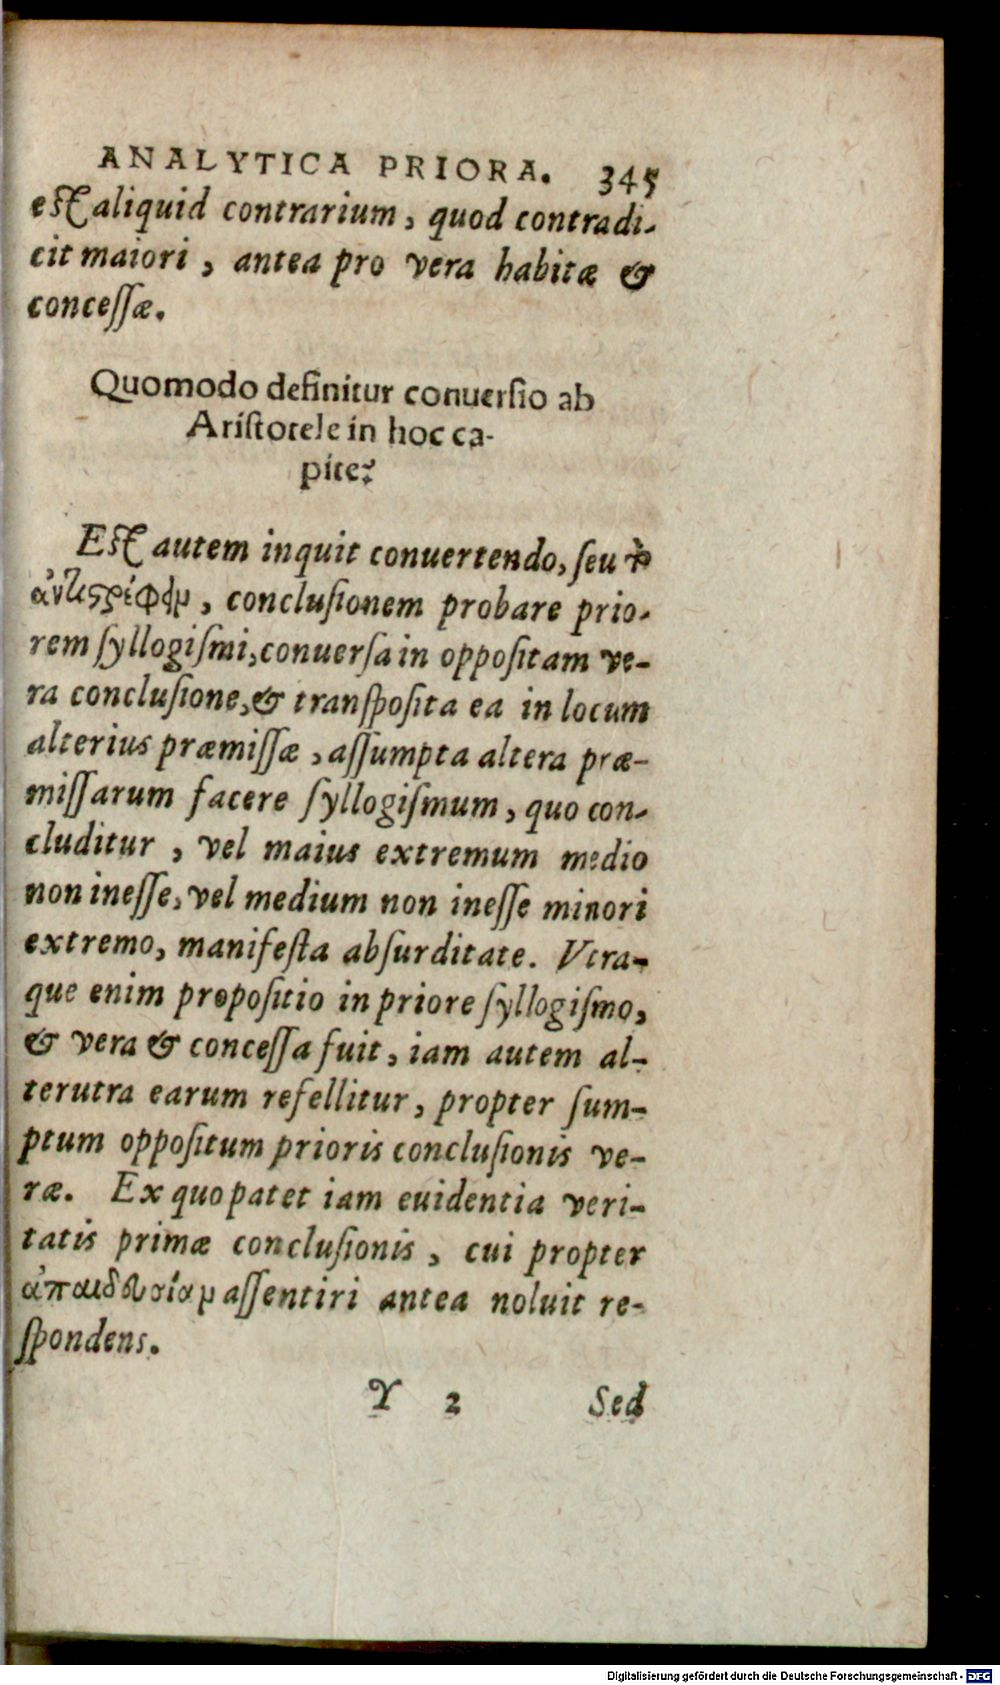 ANALYTICA PRIORA. 345
est aliquid contrarium, quod contradi-
cit maiori, antea pro vera habitæ &
concessæ.
Quomodo definitur conuersio ab
Aristotele in hoc ca-
pite?
Est autem inquit conuertendo, seu τὸ
ἀντιστρέφειν, conclusionem probare prio-
rem syllogismi, conuersa in oppositam ve-
ra conclusione, & transposita ea in locum
alterius præmissæ, assumpta altera præ-
missarum facere syllogismum, quo con-
cluditur, vel maius extremum medio
non inesse, vel medium non inesse minori
extremo, manifesta absurditate. Vtra-
que enim propositio in priore syllogismo,
& vera & concessa fuit, iam autem al-
terutra earum refellitur, propter sum-
ptum oppositum prioris conclusionis ve-
ræ. Ex quo patet iam euidentia veri-
tatis primæ conclusionis, cui propter
ἀπαιδευσίαν assentiri antea noluit re-
spondens.
Y 2 Sed
Digitalisierung gefördert durch die Deutsche Forschungsgemeinschaft - DFG